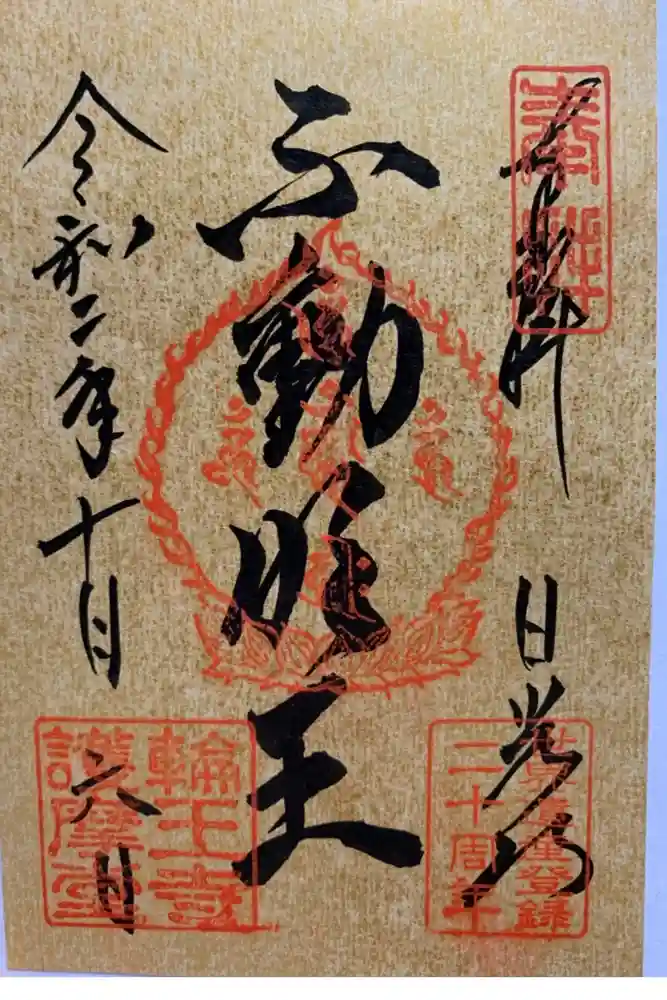 奉拝
日光山
世界遺産登録
二十周年
不動明王
令和二年十月六日
輪王寺
護摩堂